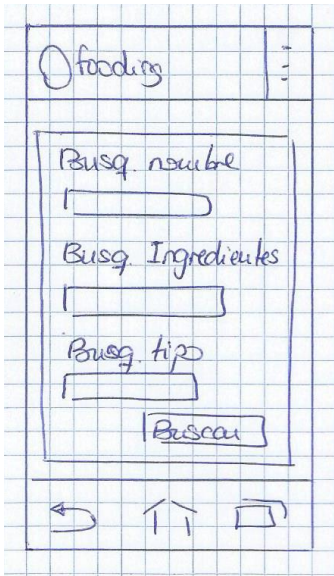 fooding
Busq. nombre
Busq. Ingredientes
Busq. tipo
Buscar